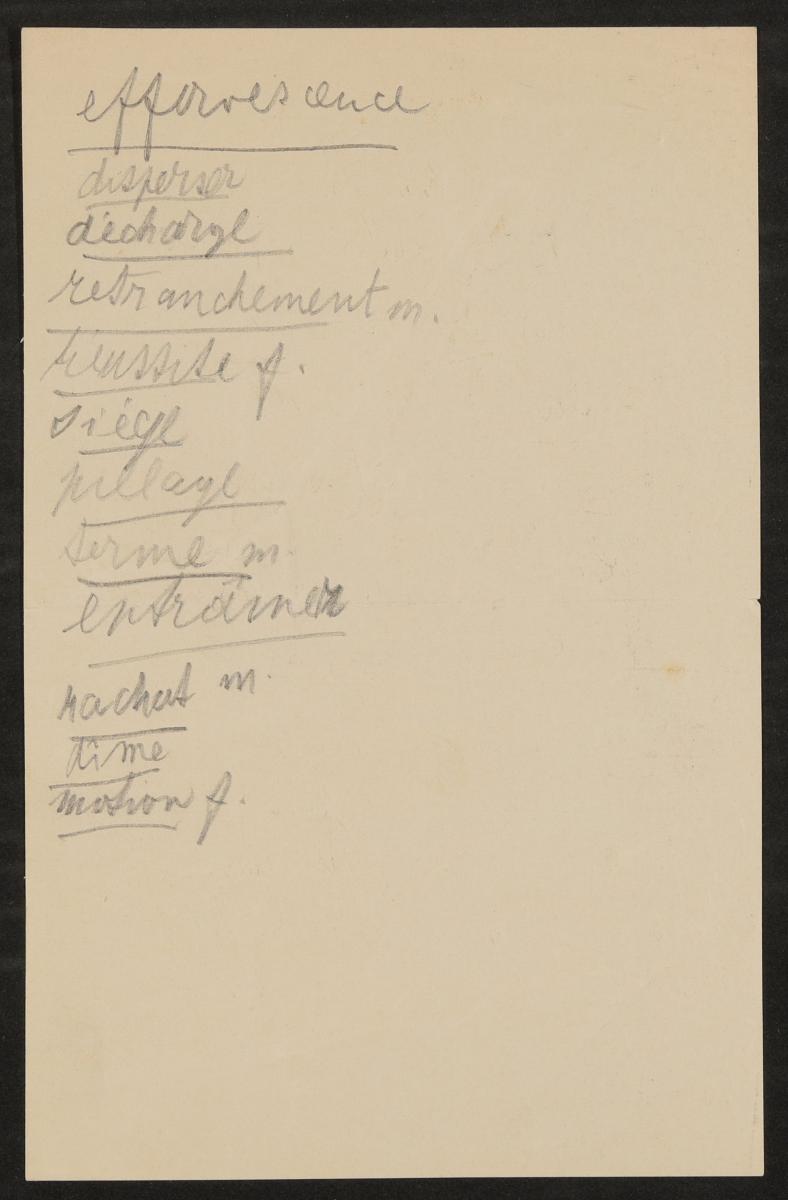 effervescence
disperser
décharge
retranchement m.
réussite f.
siége
pillage
terme m.
entraîner
rachat m.
dîme
motion f.